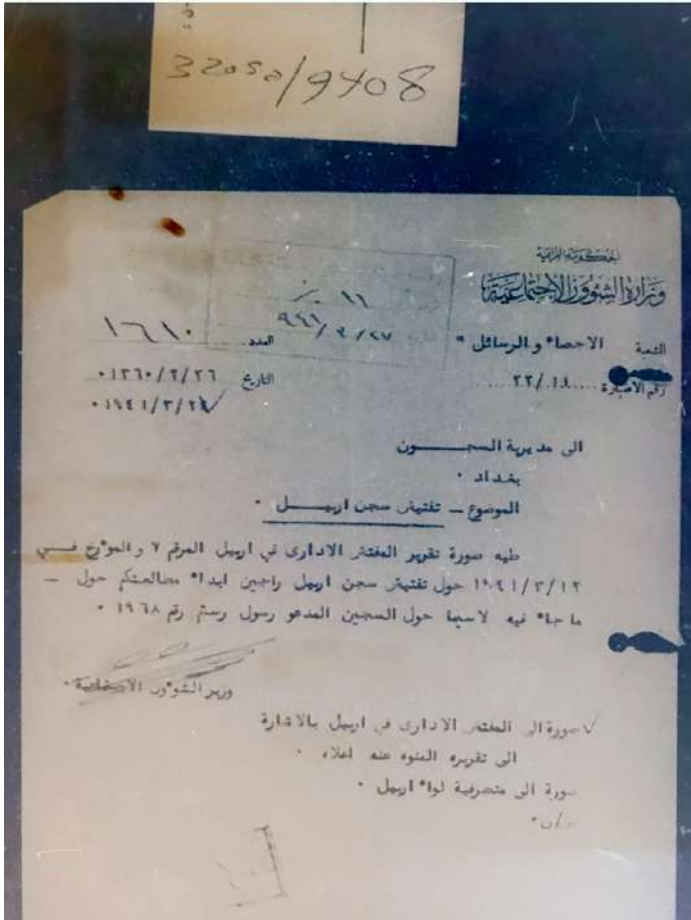 32050/9408
الحكومة العراقية
وزارة الشؤون الاجتماعية
١١
٩٤١/٣/٢٧
الشعبة الاحصاء والرسائل "
العدد ١٦١٠
رقم الاضبارة ٢٢/١٨
التاريخ ١٣٦٠/٢/٢٦٠
١٩٤١/٣/٢٤٠
الى مديرية السجـــــون
بغداد ٠
الموضوع ــ تفتيش سجن اربيـــل ٠
طيه صورة تقرير المفتش الادارى في اربيل المرقم ٧ والمؤرخ فـــي
١٩٤١/٣/١٢ حول تفتيش سجن اربيل راجين ابداء مطالعتكم حول ــ
ما جاء فيه لاسيما حول السجين المدعو رسول رستم رقم ١٩٦٨ ٠
وزير الشؤون الاجتماعية ٠
صورة الى المفتش الادارى في اربيل بالاشارة
الى تقريره المنوه عنه اعلاه ٠
صورة الى متصرفية لواء اربيل ٠